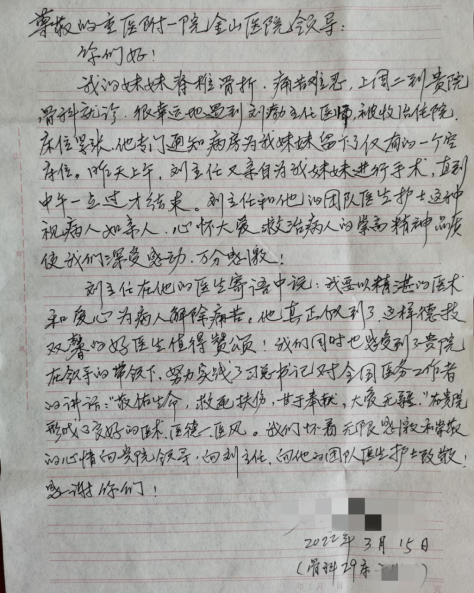 尊敬的重医附一院金山医院领导:
你们好!
我的妹妹脊椎骨折,痛苦难忍,上周二到贵院
骨科就诊,很幸运地遇到刘渤主任医师,被收治住院,
床位紧张,他专门通知病房为我妹妹留下了仅有的一个空
床位。昨天上午,刘主任又亲自为我妹妹进行手术,直到
中午一点过才结束。刘主任和他的团队医生护士这种
视病人如亲人,心怀大爱,救治病人的崇高精神品质
使我们深受感动,万分感激!
刘主任在他的医生寄语中说:我要以精湛的医术
和爱心为病人解除痛苦。他真正做到了,这样德技
双馨的好医生值得赞颂!我们同时也感受到了贵院
在领导的带领下,努力实践了习总书记对全国医务工作者
的讲话:“敬佑生命,救死扶伤,甘于奉献,大爱无疆。”在贵院
形成了良好的医术、医德、医风。我们怀着无限感激和崇敬
的心情向贵院领导,向刘主任,向他的团队医生护士致敬!
感谢你们!
2022年3月15日
(骨科29床